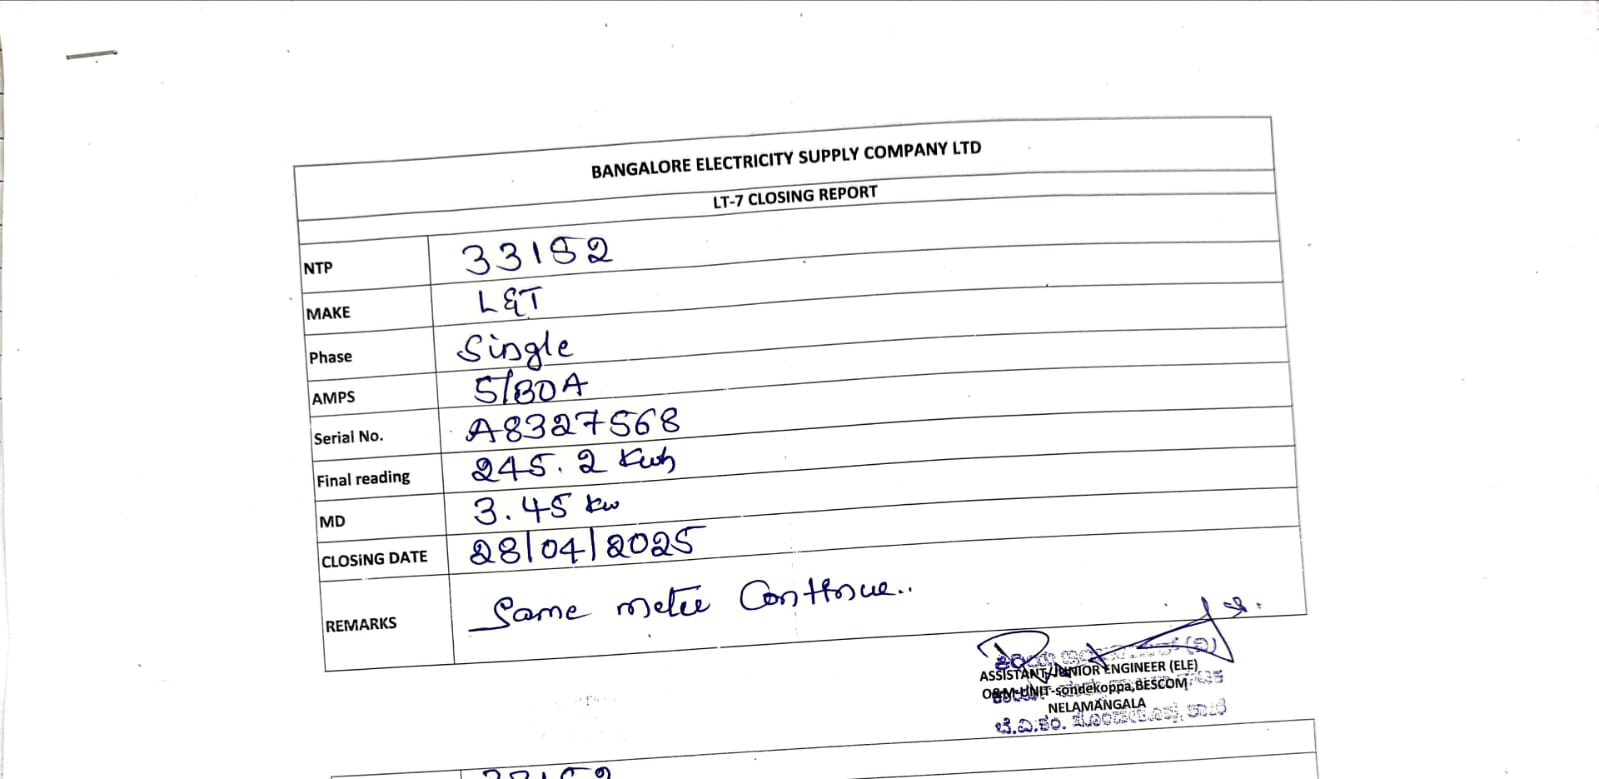 BANGALORE ELECTRICITY SUPPLY COMPANY LTD
LT-7 CLOSING REPORT
NTP 33152
MAKE L&T
Phase Single
AMPS 5/30A
Serial No. A8327568
Final reading 245.2 Kwh
MD 3.45 kw
CLOSiNG DATE 28/04/2025
REMARKS Same meter Continue..
ASSISTANT/JUNIOR ENGINEER (ELE)
O&M UNIT-sondekoppa,BESCOM
NELAMANGALA